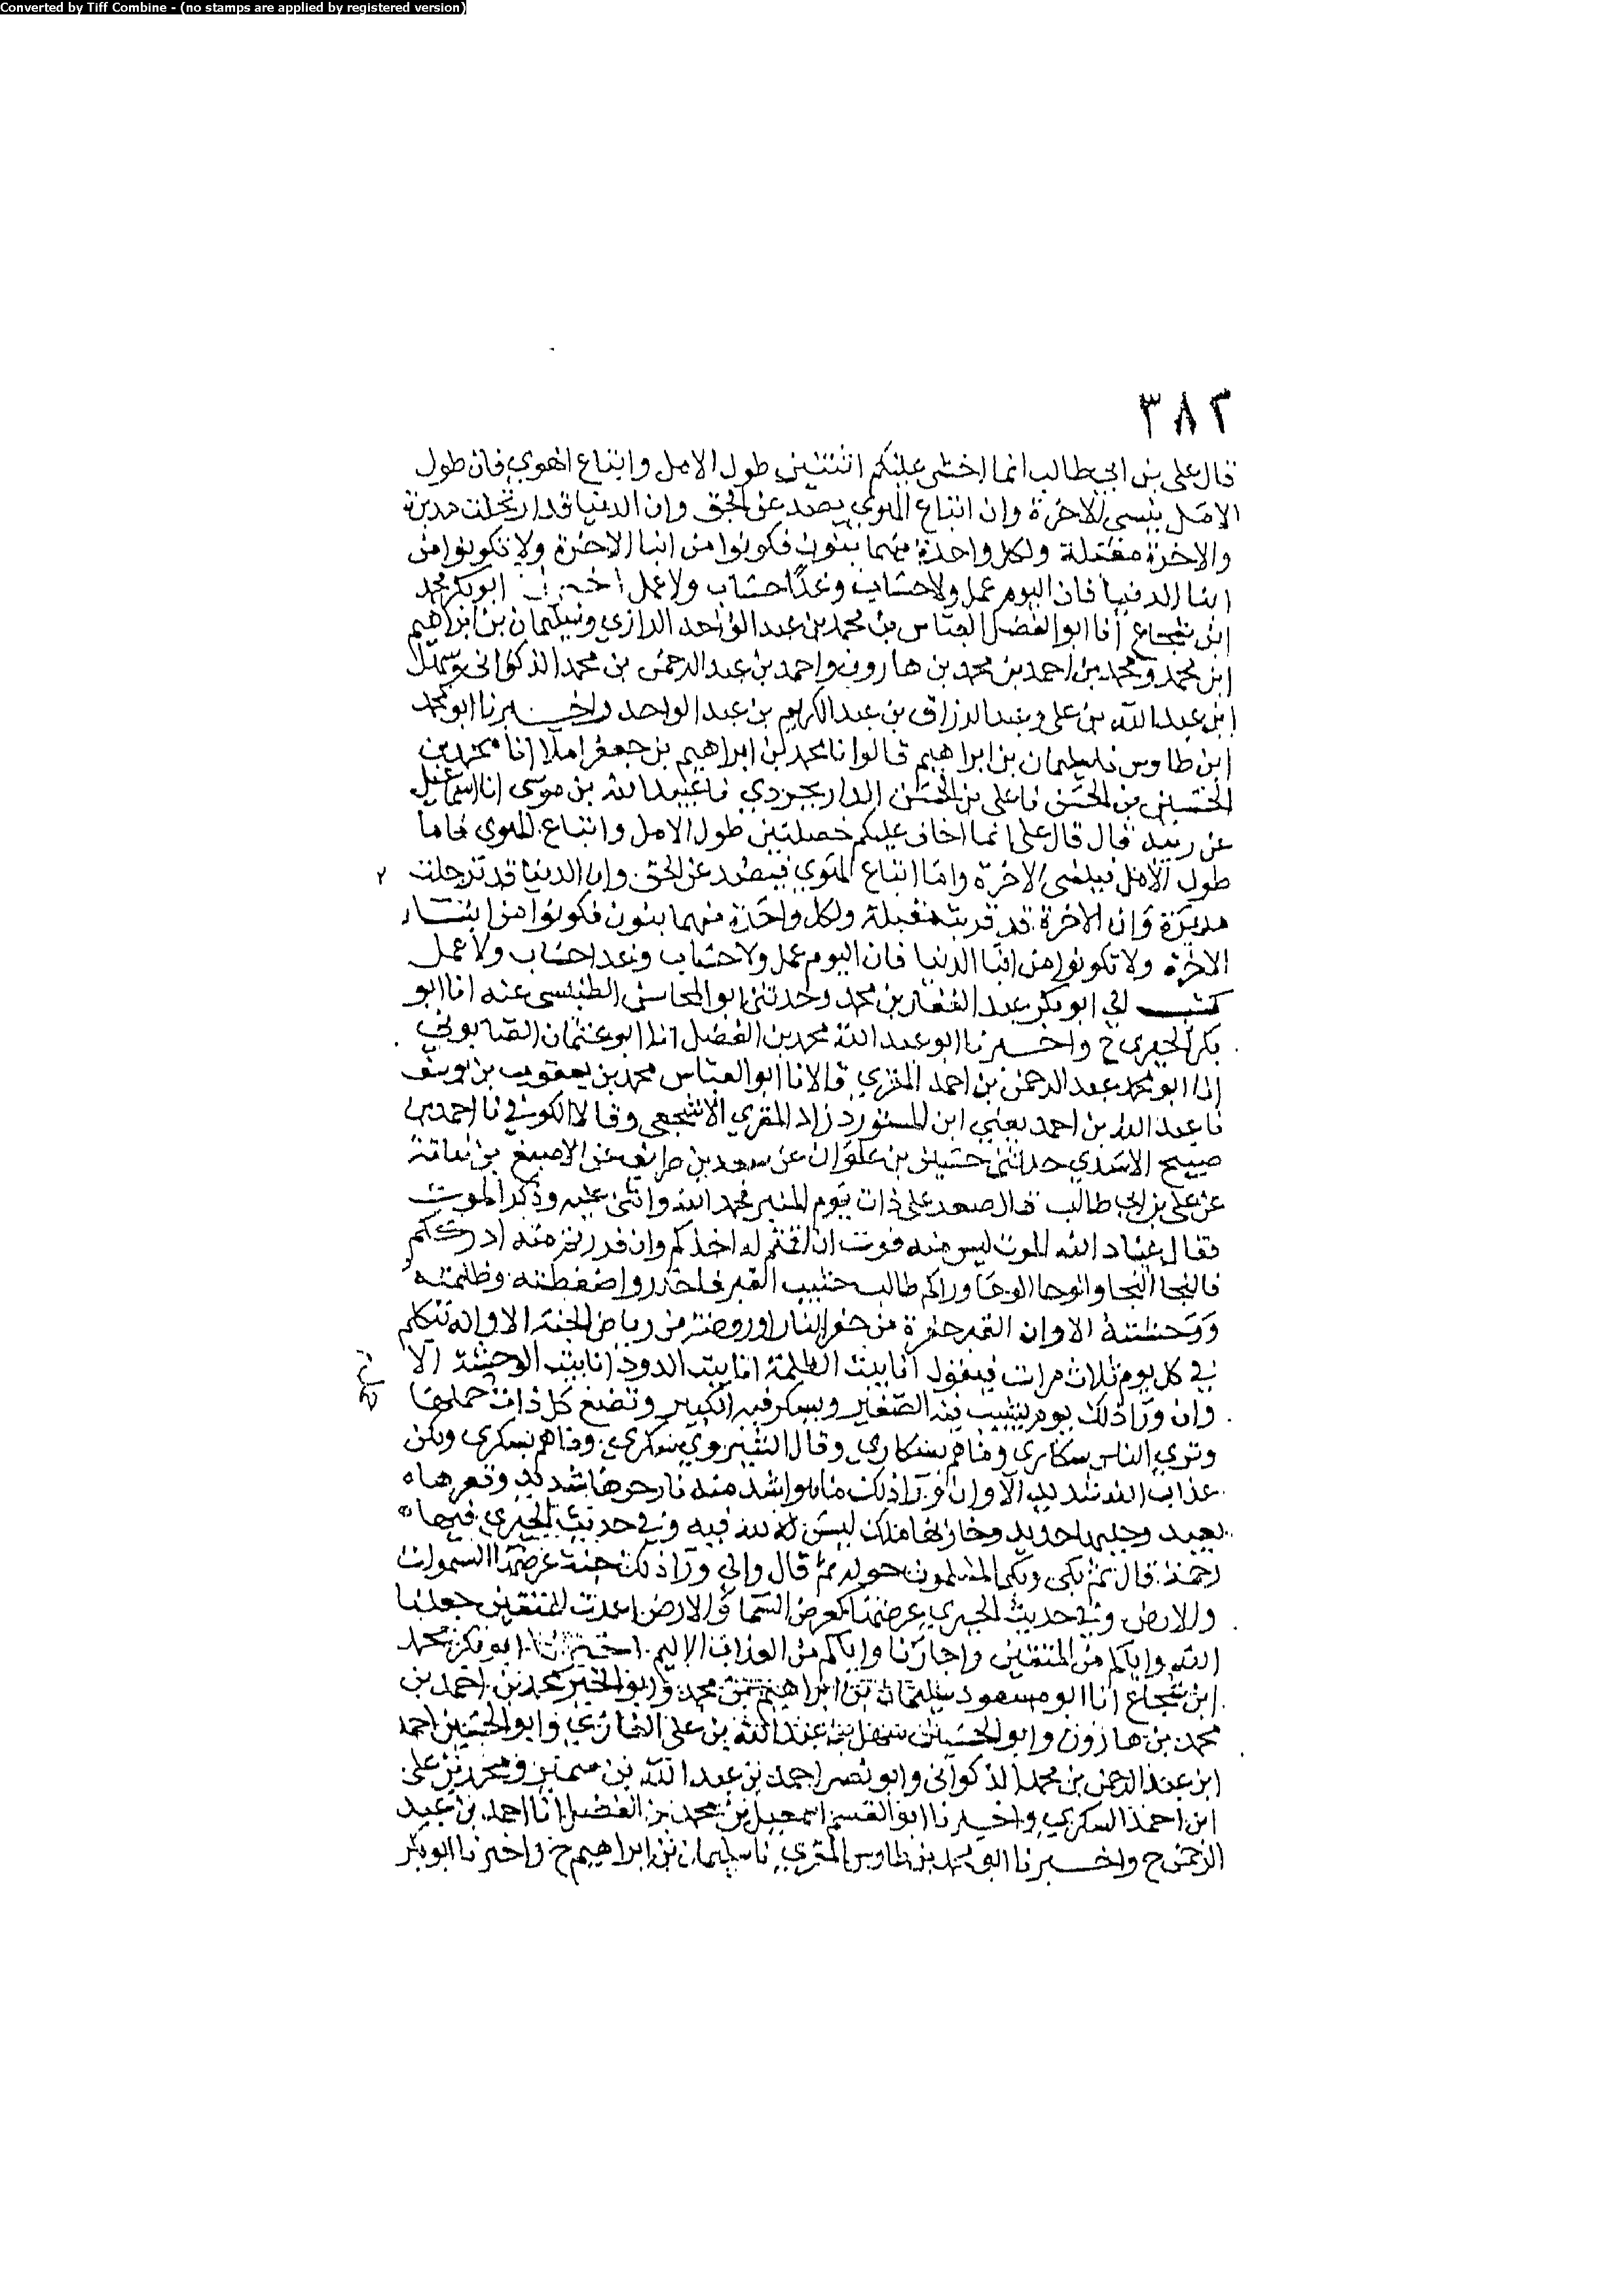 Converted by Tiff Combine - (no stamps are applied by registered version)
٣٨٢
قال علي بن ابي طالب انما اخشى عليكم اثنتين طول الامل واتباع الهوي فان طول
الامل ينسي الاخرة وان اتباع الهوي يصد عن الحق وان الدنيا قد ارتحلت مدبرة
والاخرة مقبلة ولكل واحدة منهما بنون فكونوا من ابنا الاخرة ولا تكونوا من
ابنا الدنيا فان اليوم عمل ولا حساب وغدا حساب ولا عمل اخبرنا ابو بكر محمد
ابن شجاع انا ابو الفضل العباس بن محمد بن عبد الواحد الرازي وسليمان بن ابراهيم
ابن محمد ومحمد بن احمد بن محمد بن هارون واحمد بن عبد الرحمن بن محمد الذكواني وسهل
ابن عبد الله بن علي وعبد الرزاق بن عبد الكريم بن عبد الواحد واخبرنا ابو محمد
ابن طاوس نا سليمان بن ابراهيم قالوا نا محمد بن ابراهيم بن جعفر املا انا محمد بن
الحسين بن الحسن نا علي بن الحسن الدارابجردي نا عبيد الله بن موسى انا اسماعيل
عن زبيد قال قال علي انما اخاف عليكم خصلتين طول الامل واتباع الهوى فاما
طول الامل فينسى الاخرة واما اتباع الهوي فيصد عن الحق وان الدنيا قد ترحلت ٢
مدبرة وان الاخرة قد قربت مقبلة ولكل واحدة منهما بنون فكونوا من ابنا
الاخرة ولا تكونوا من ابنا الدنيا فان اليوم عمل ولا حساب وغدا حساب ولا عمل
كتب الي ابو بكر عبد الغفار بن محمد وحدثني ابو المحاسن الطبسي عنه انا ابو
بكر الحيري ح واخبرنا ابو عبد الله محمد بن الفضل انا ابو عثمان الصابوني
انا ابو محمد عبد الرحمن بن احمد المقري قالا نا ابو العباس محمد بن يعقوب بن يوسف
نا عبد الله بن احمد يعني ابن المستورد زاد المقري الاشجعي وقالا الكوفي نا احمد بن
صبيح الاسدي حدثني حسين بن علوان عن سعد بن طريف عن الاصبغ بن نباتة
عن علي بن ابي طالب قال صعد علي ذات يوم المنبر فحمد الله واثنى عليه وذكر الموت
فقال عباد الله الموت ليس منه فوت ان اقمتم له اخذكم وان فررتم منه ادرككم
فالنجا النجا والوحا الوحا وراكم طالب حثيث القبر فاحذروا ضغطته وظلمته
ووحشته الا وان القبر حفرة من حفر النار او روضة من رياض الجنة الا وانه يتكلم
في كل يوم ثلاث مرات فيقول انا بيت الظلمة انا بيت الدود انا بيت الوحشة الا
وان ورا ذلك يوم يشيب فيه الصغير ويسكر فيه الكبير وتضع كل ذات حمل حملها
وتري الناس سكاري وما هم بسكاري وقال الحيري سكرى وما هم بسكرى ولكن
عذاب الله شديد الا وان ورا ذلك ما هو اشد منه نار حرها شديد وقعرها
بعيد وحليها حديد وخازنها ملك ليس لله فيه وفي حديث الحيري فيها
رحمة قال ثم بكى وبكى المسلمون حوله ثم قال والي ورا ذلك جنة عرضها السموات
والارض وفي حديث الحيري عرضها كعرض السما والارض اعدت للمتقين جعلنا
الله واياكم من المتقين واجارنا واياكم من العذاب الاليم اخبرنا ابو بكر محمد
ابن شجاع انا ابو مسعود سليمان بن ابراهيم بن محمد وابو الخير محمد بن احمد بن
محمد بن هارون وابو الحسين سهل بن عبد الله بن علي الغازي وابو الحسين احمد
ابن عبد الرحمن بن محمد الذكواني وابو نصر احمد بن عبد الله بن سمير ومحمد بن علي
ابن احمد السكري واخبرنا ابو القسم اسمعيل بن محمد بن الفضل انا احمد بن عبد
الرحمن ح واخبرنا ابو محمد بن طاوس المقري نا سليمان بن ابراهيم ح واخبرنا ابو بكر